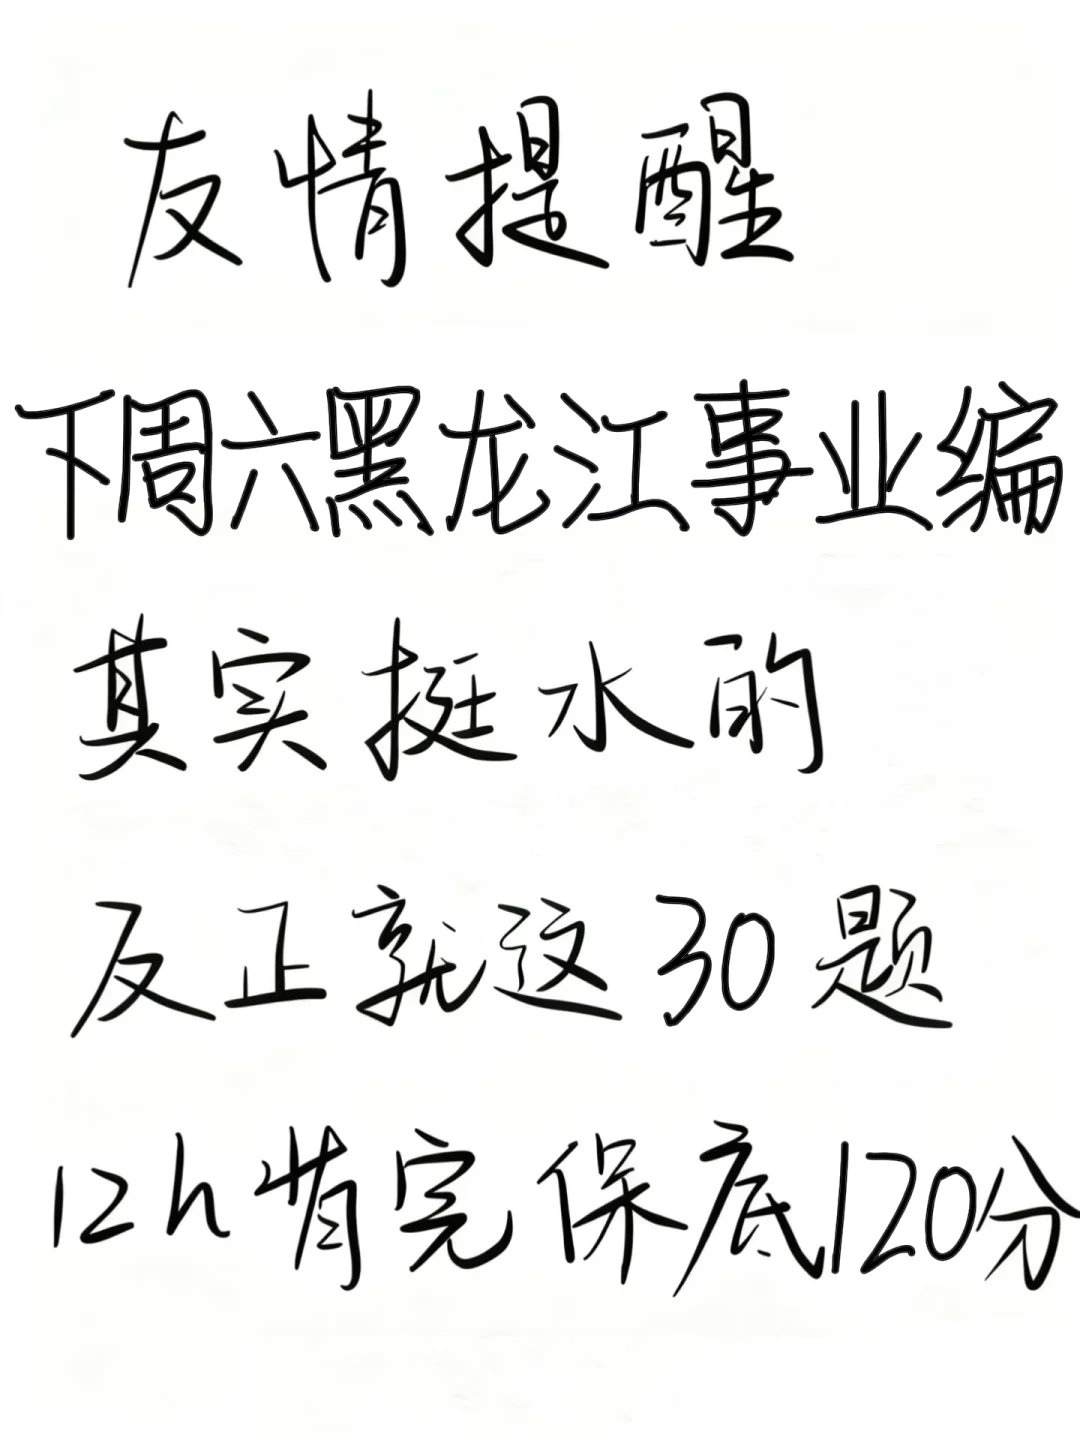 友情提醒
下周六黑龙江事业编
其实挺水的
反正就这30题
12h背完保底120分